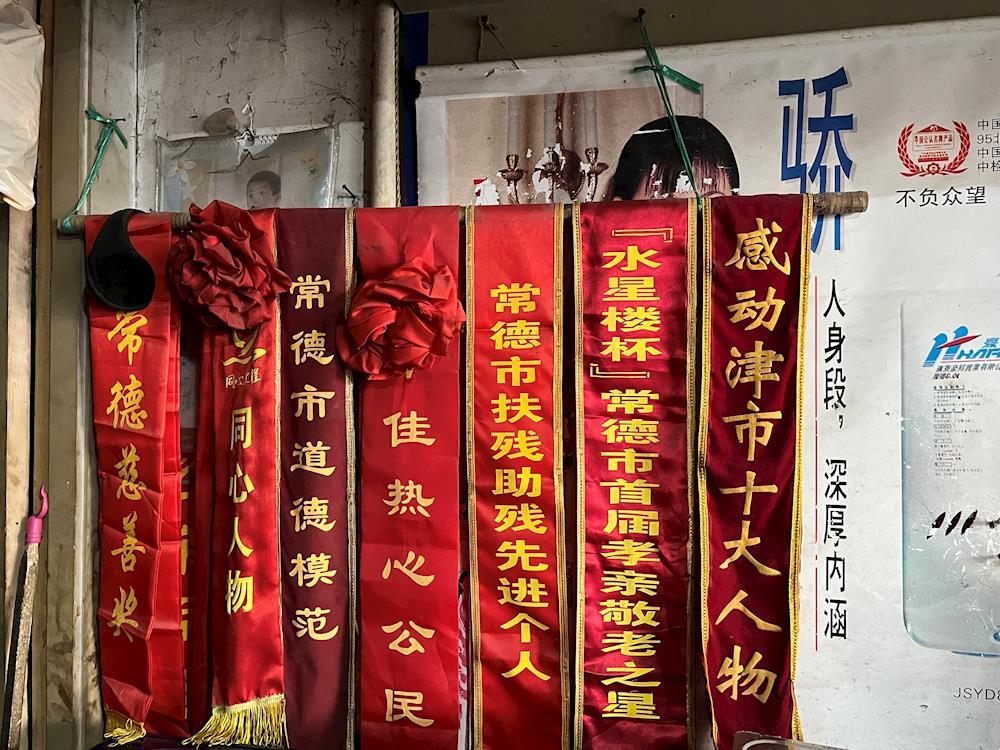 常德慈善奖
同心人物
常德市道德模范
佳热心公民
常德市扶残助残先进个人
『水星楼杯』常德市首届孝亲敬老之星
感动津市十大人物
骄
不负众望
人身段，深厚内涵
JSYD8